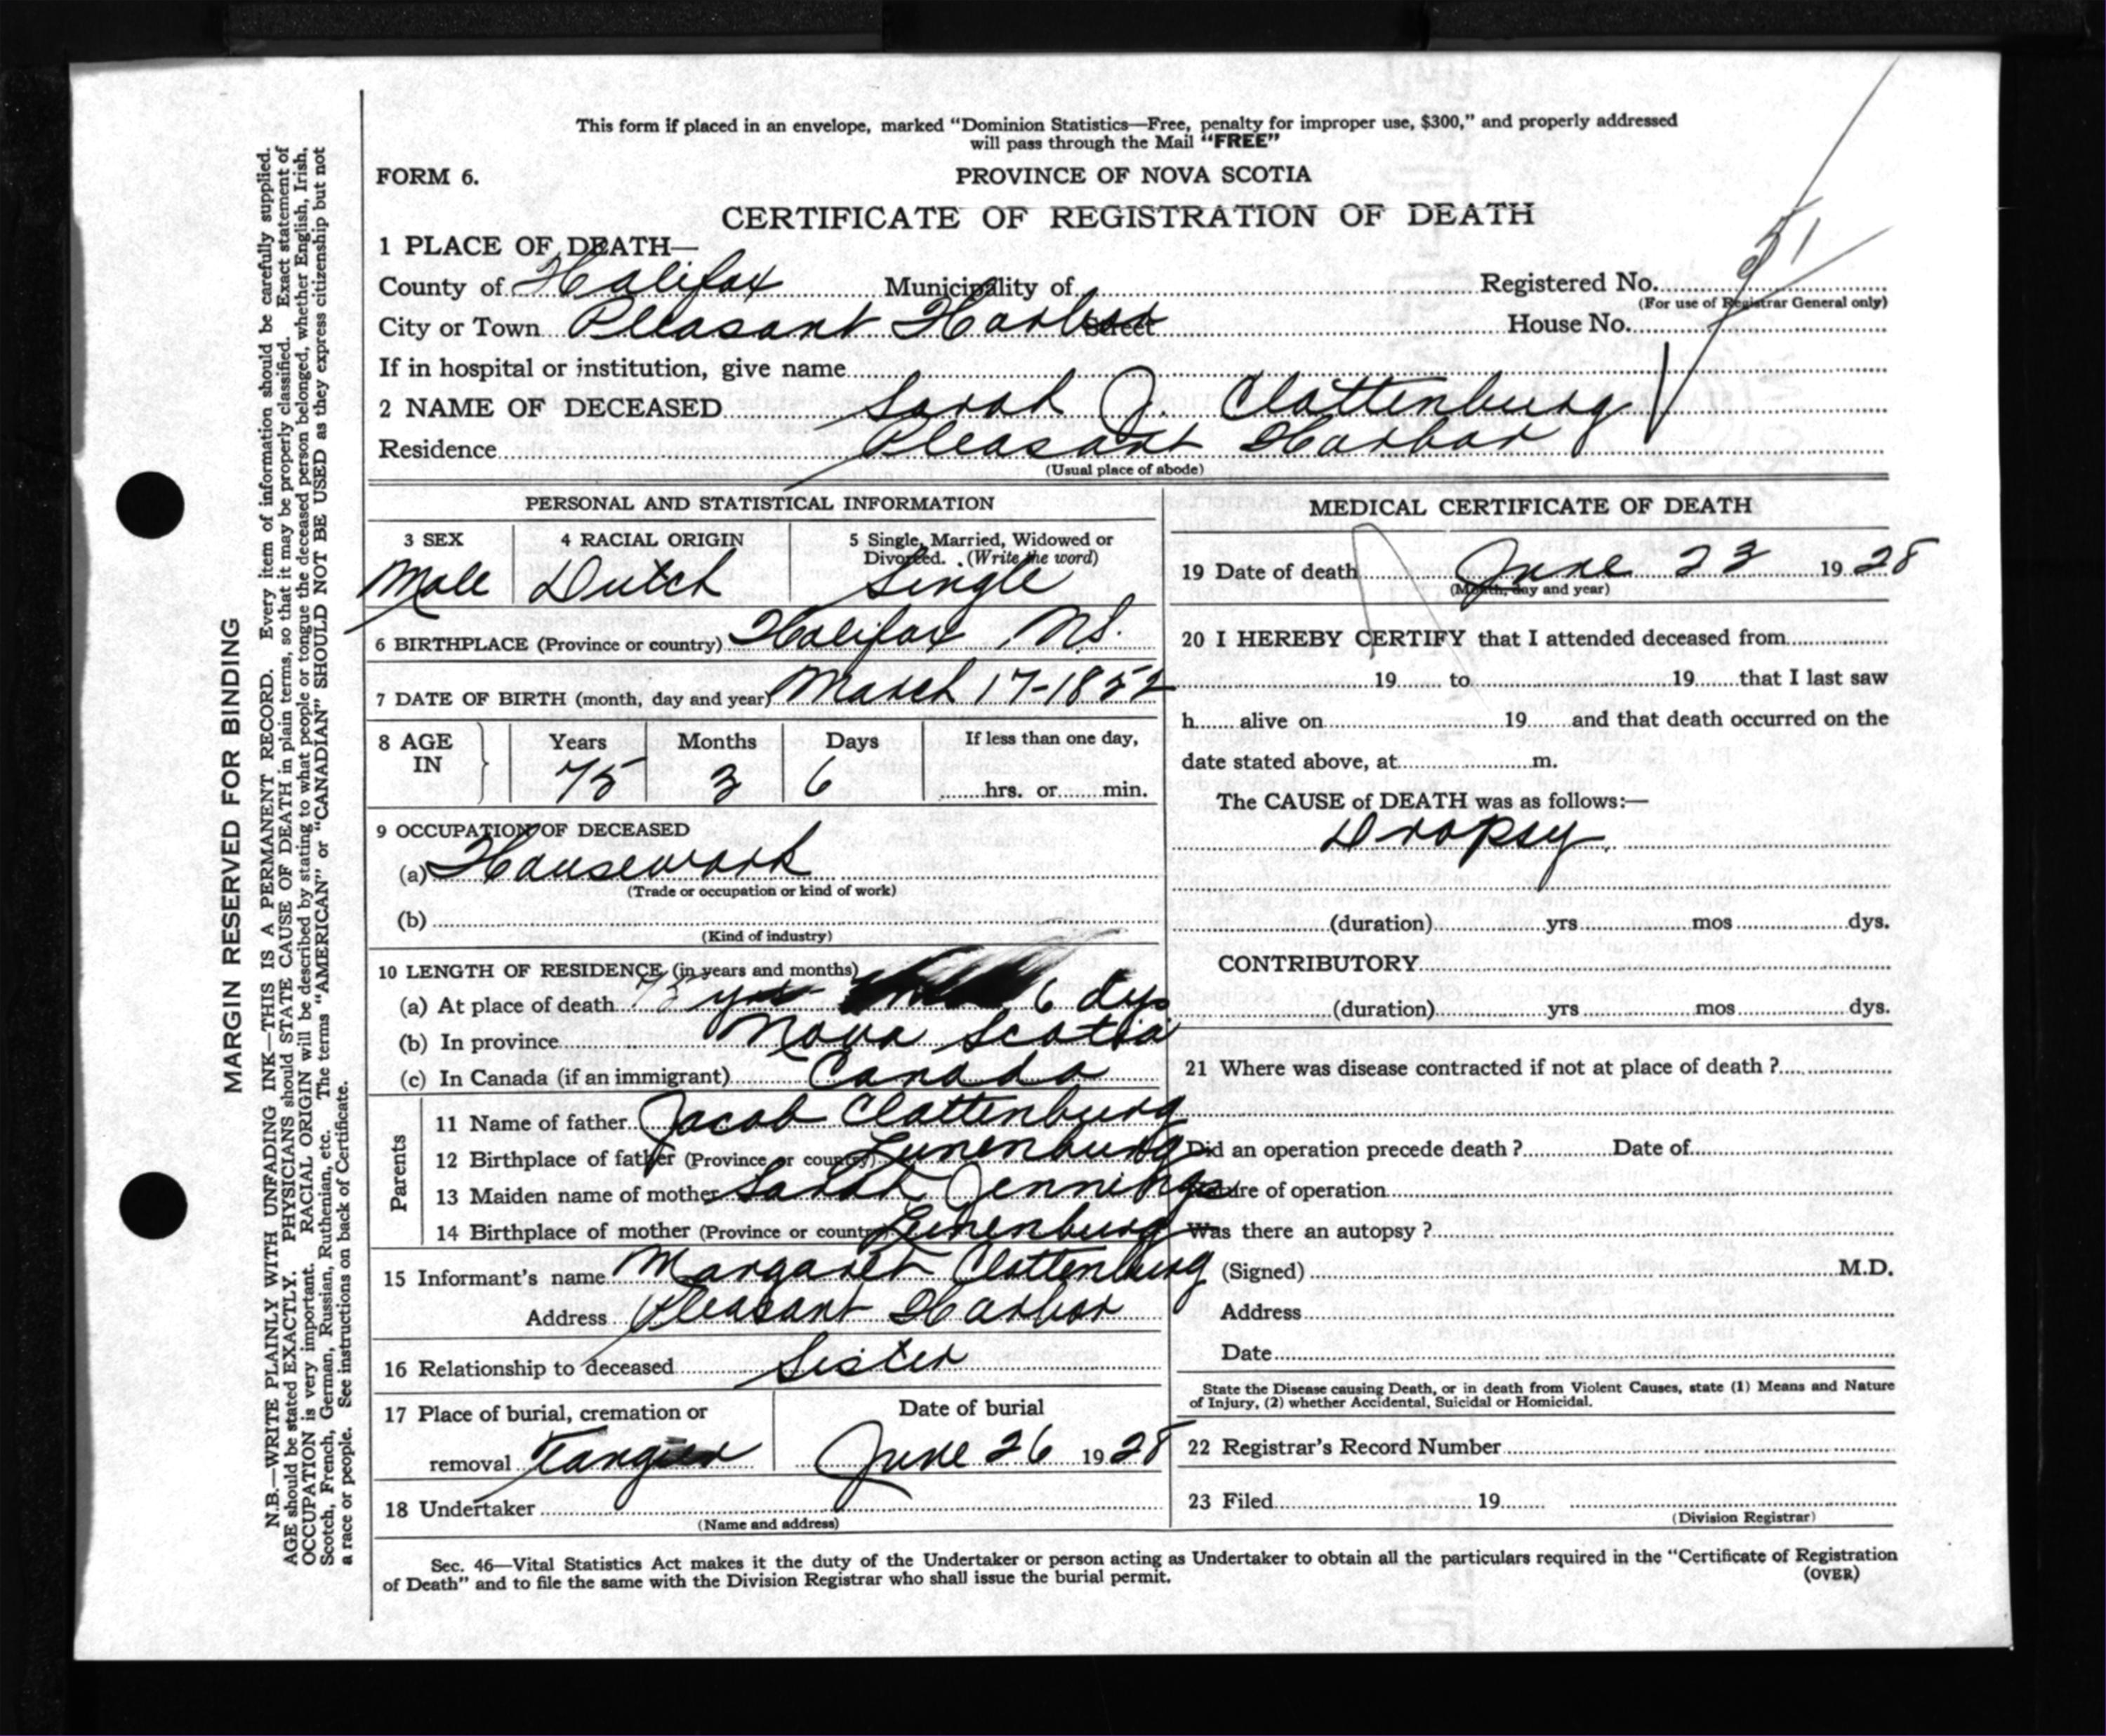 This form if placed in an envelope, marked "Dominion Statistics—Free, penalty for improper use, $300," and properly addressed
will pass through the Mail "FREE"
FORM 6.
PROVINCE OF NOVA SCOTIA
CERTIFICATE OF REGISTRATION OF DEATH
1 PLACE OF DEATH—
County of Halifax Municipality of Registered No. 51
(For use of Registrar General only)
City or Town Pleasant Harbor Street House No.
If in hospital or institution, give name
2 NAME OF DECEASED Sarah J. Clattenburg
Residence Pleasant Harbor
(Usual place of abode)
PERSONAL AND STATISTICAL INFORMATION
3 SEX 4 RACIAL ORIGIN 5 Single, Married, Widowed or
Divorced. (Write the word)
Male Dutch Single
6 BIRTHPLACE (Province or country) Halifax N.S.
7 DATE OF BIRTH (month, day and year) March 17-1852
8 AGE IN Years Months Days If less than one day,
75 3 6 hrs. or min.
9 OCCUPATION OF DECEASED
(a) Housework
(Trade or occupation or kind of work)
(b)
(Kind of industry)
10 LENGTH OF RESIDENCE (in years and months)
(a) At place of death 75 yrs 6 dys
(b) In province Nova Scotia
(c) In Canada (if an immigrant) Canada
Parents
11 Name of father Jacob Clattenburg
12 Birthplace of father (Province or country) Lunenburg
13 Maiden name of mother Sarah Jennings
14 Birthplace of mother (Province or country) Lunenburg
15 Informant's name Margaret Clattenburg
Address Pleasant Harbor
16 Relationship to deceased Sister
17 Place of burial, cremation or Date of burial
removal Tangier June 26 1928
18 Undertaker
(Name and address)
MEDICAL CERTIFICATE OF DEATH
19 Date of death June 23 1928
(Month, day and year)
20 I HEREBY CERTIFY that I attended deceased from
19 to 19 that I last saw
h alive on 19 and that death occurred on the
date stated above, at m.
The CAUSE of DEATH was as follows:—
Dropsy
(duration) yrs mos dys.
CONTRIBUTORY
(duration) yrs mos dys.
21 Where was disease contracted if not at place of death ?
Did an operation precede death ? Date of
Nature of operation
Was there an autopsy ?
(Signed) M.D.
Address
Date
State the Disease causing Death, or in death from Violent Causes, state (1) Means and Nature
of Injury, (2) whether Accidental, Suicidal or Homicidal.
22 Registrar's Record Number
23 Filed 19
(Division Registrar)
Sec. 46—Vital Statistics Act makes it the duty of the Undertaker or person acting as Undertaker to obtain all the particulars required in the "Certificate of Registration
of Death" and to file the same with the Division Registrar who shall issue the burial permit.
(OVER)
MARGIN RESERVED FOR BINDING
N.B.—WRITE PLAINLY WITH UNFADING INK—THIS IS A PERMANENT RECORD. Every item of information should be carefully supplied.
AGE should be stated EXACTLY. PHYSICIANS should STATE CAUSE OF DEATH in plain terms, so that it may be properly classified. Exact statement of
OCCUPATION is very important. RACIAL ORIGIN will be described by stating to what people or tongue the deceased person belonged, whether English, Irish,
Scotch, French, German, Russian, Ruthenian, etc. The terms "AMERICAN" or "CANADIAN" SHOULD NOT BE USED as they express citizenship but not
a race or people. See instructions on back of Certificate.